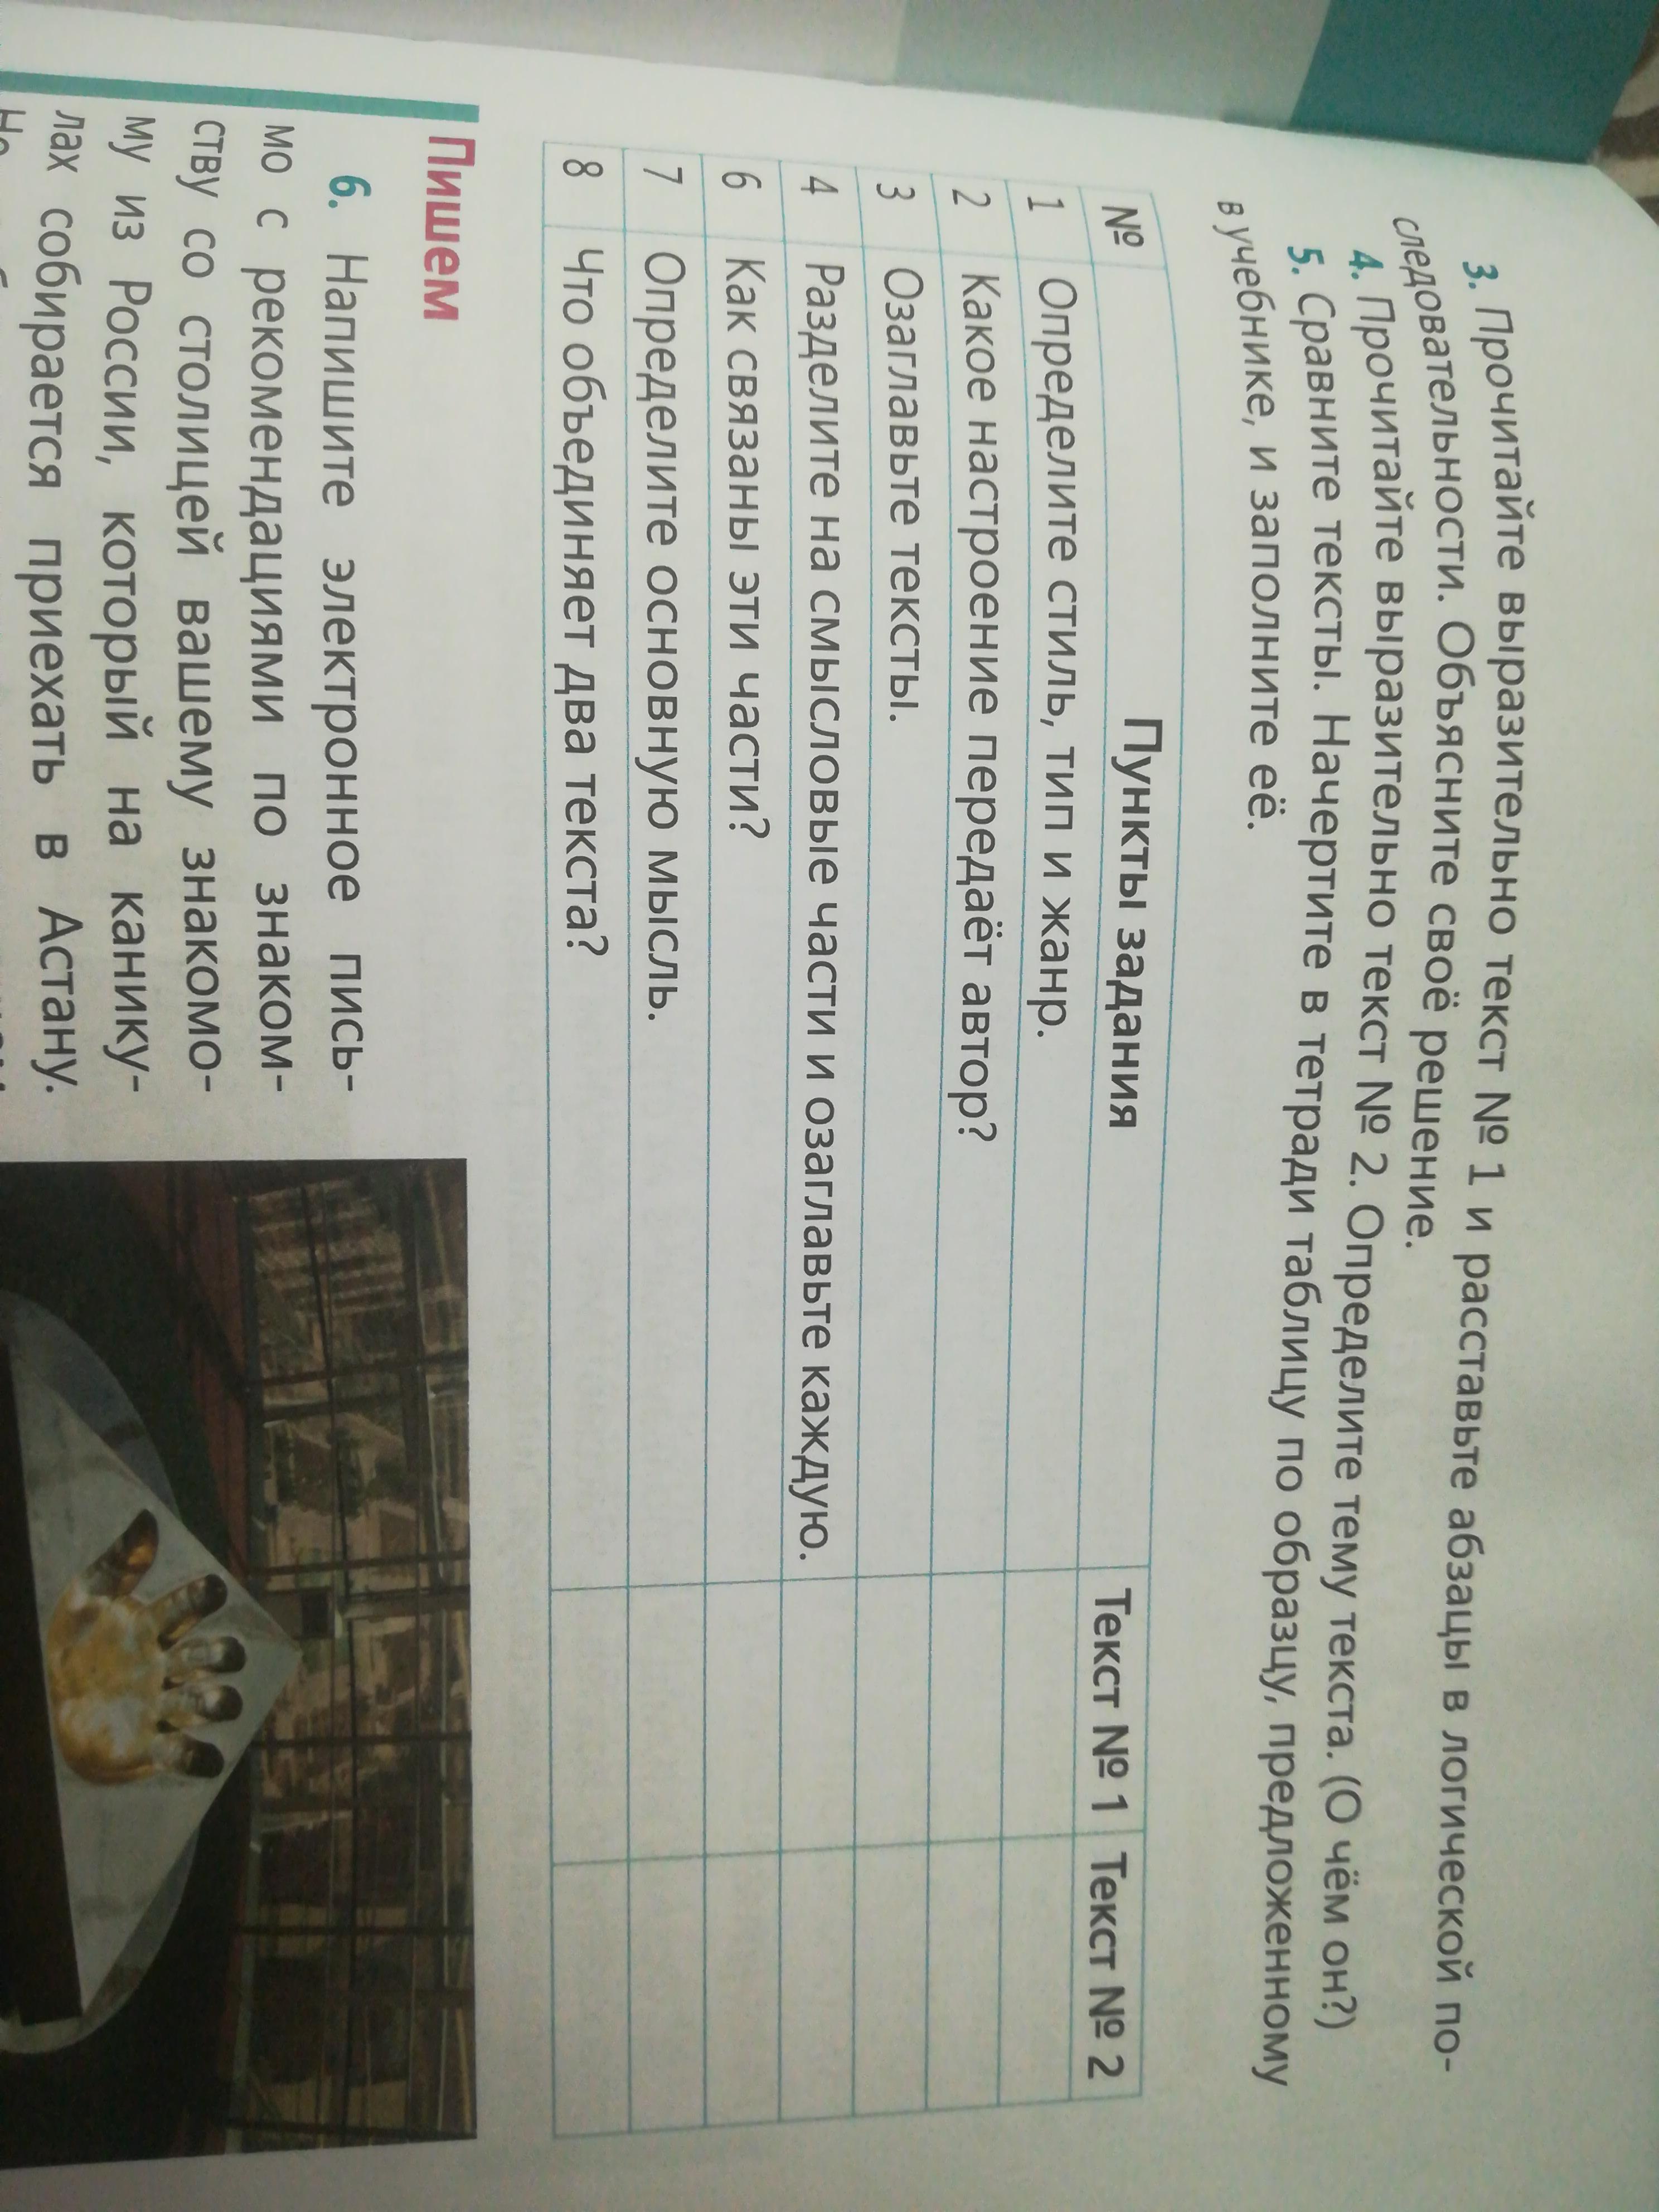 3. Прочитайте выразительно текст № 1 и расставьте абзацы в логической по-
следовательности. Объясните своё решение.
4. Прочитайте выразительно текст № 2. Определите тему текста. (О чём он?)
5. Сравните тексты. Начертите в тетради таблицу по образцу, предложенному
в учебнике, и заполните её.
№ Пункты задания Текст № 1 Текст № 2
1 Определите стиль, тип и жанр.
2 Какое настроение передаёт автор?
3 Озаглавьте тексты.
4 Разделите на смысловые части и озаглавьте каждую.
6 Как связаны эти части?
7 Определите основную мысль.
8 Что объединяет два текста?
Пишем
6. Напишите электронное пись-
мо с рекомендациями по знаком-
ству со столицей вашему знакомо-
му из России, который на канику-
лах собирается приехать в Астану.